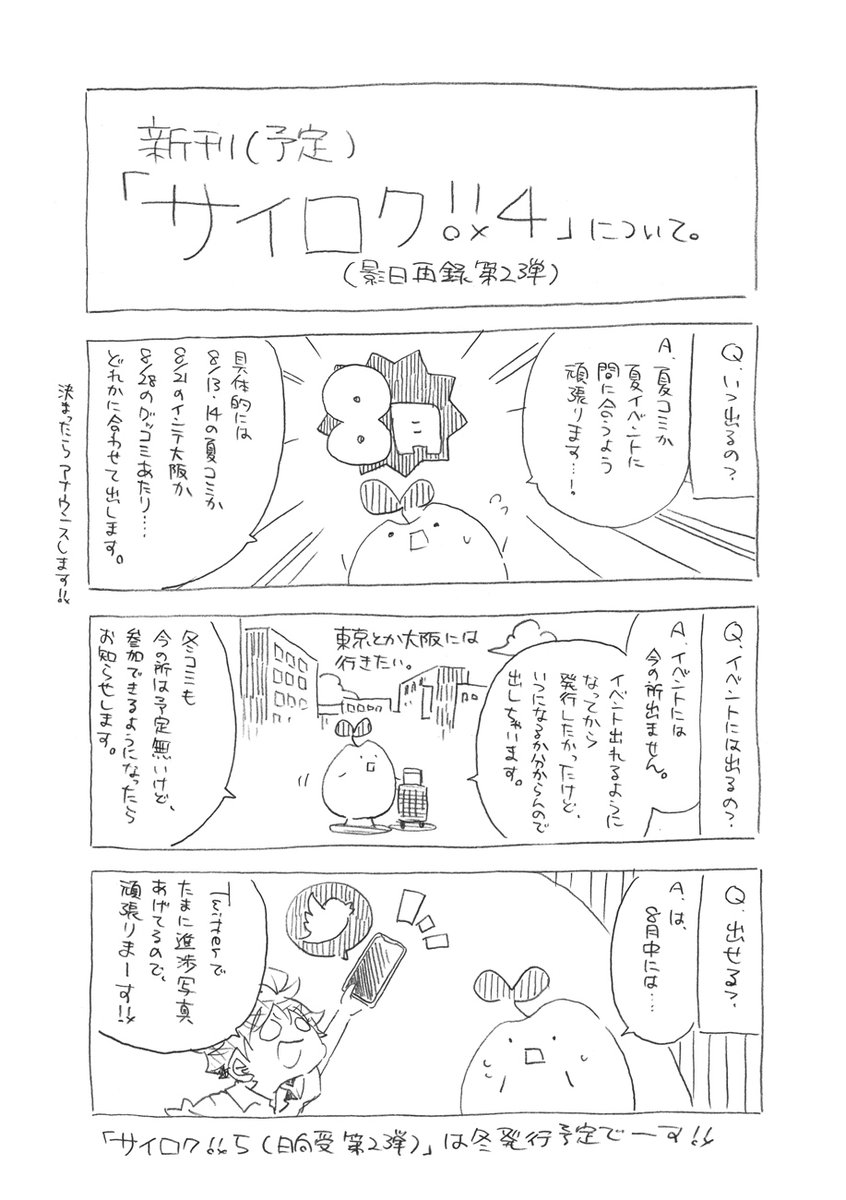 新刊(予定)
「サイロク!!4」について。
(影日再録第2弾)
Q.いつ出るの?
A.夏コミか
夏イベントに
間に合うよう
頑張ります…!
8月
具体的には
8/13・14の夏コミか
8/21のインテ大阪か
8/28のグッコミあたり…
どれかに合わせて出します。
決まったらアナウンスします!!
Q.イベントには出るの?
A.イベントには
今の所出ません。
イベント出れるように
なってから
発行したかったけど、
いつになるか分からんので
出しちゃいます。
東京とか大阪には
行きたい。
冬コミも
今の所は予定無いけど、
参加できるようになったら
お知らせします。
Q.出せる?
A.は、
8月中には…
Twitterで
たまに進捗写真
あげてるので、
頑張りまーす!!
「サイロク!!5(日向受第2弾)」は冬発行予定でーす!!